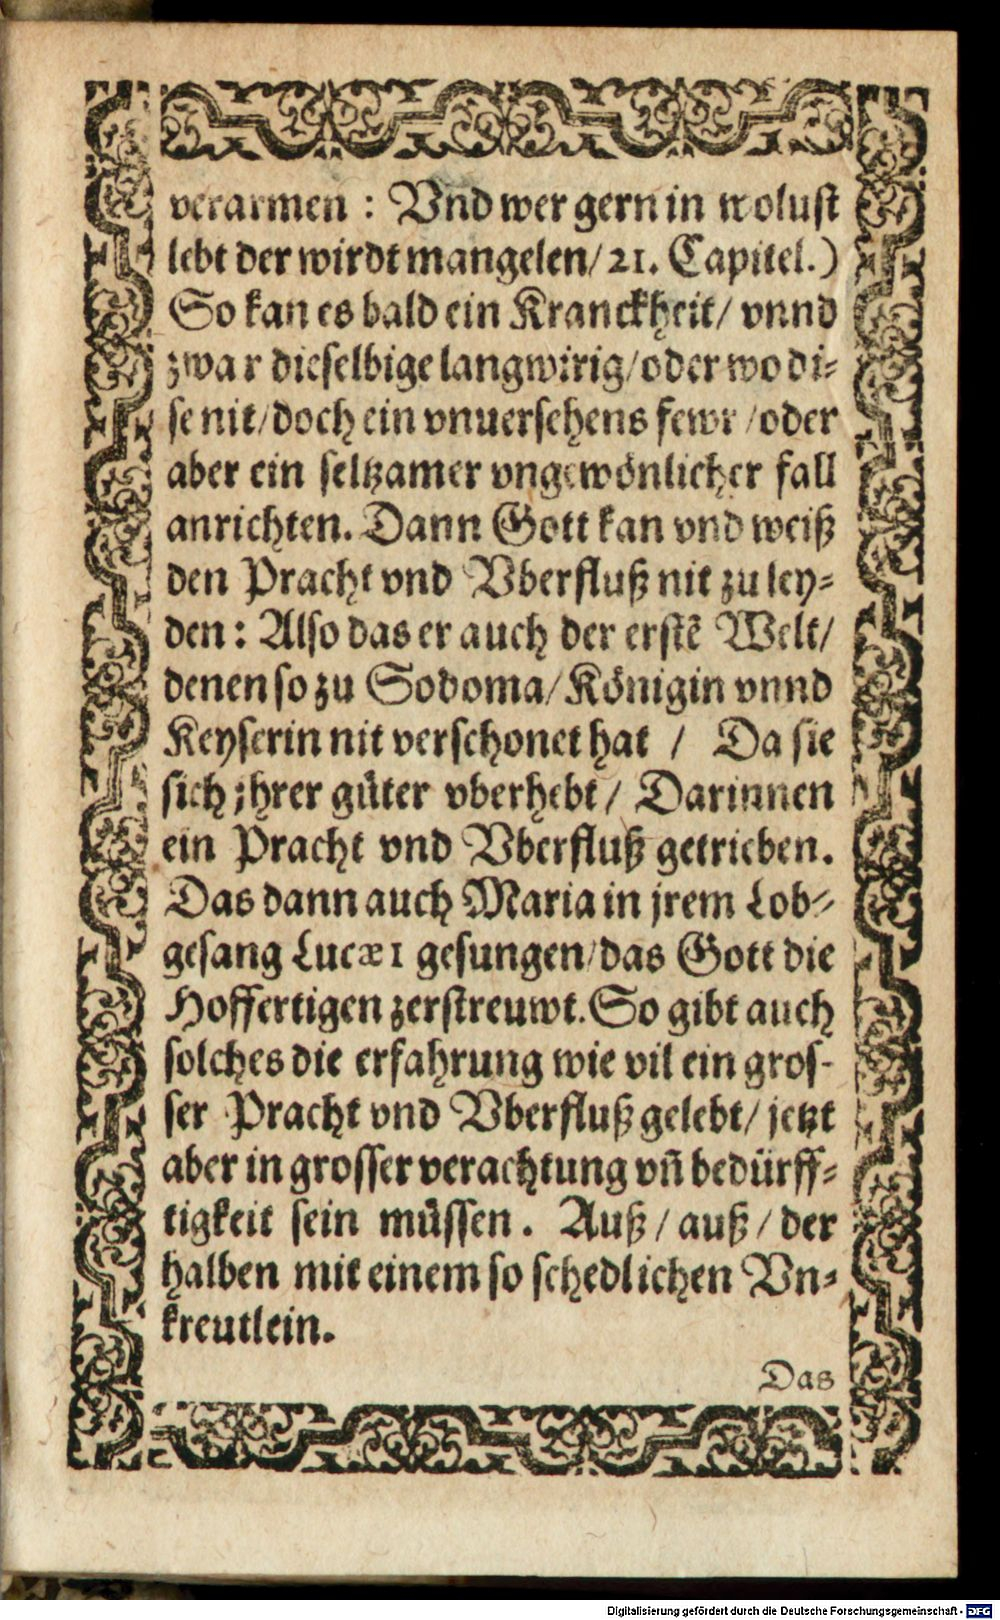 verarmen : Vnd wer gern in wolust
lebt der wirdt mangelen/ 21. Capitel.)
So kan es bald ein Kranckheit/ vnnd
zwar dieselbige langwirig/oder wo di⸗
se nit/doch ein vnuersehens fewr /oder
aber ein seltzamer vngewönlicher fall
anrichten. Dann Gott kan vnd weiß
den Pracht vnd Vberfluß nit zu ley⸗
den : Also das er auch der erstẽ Welt/
denen so zu Sodoma/ Königin vnnd
Keyserin nit verschonet hat / Da sie
sich jhrer güter vberhebt / Darinnen
ein Pracht vnd Vberfluß getrieben.
Das dann auch Maria in jrem Lob⸗
gesang Lucæ 1 gesungen/das Gott die
Hoffertigen zerstreuwt. So gibt auch
solches die erfahrung wie vil ein gros⸗
ser Pracht vnd Vberfluß gelebt/ jetzt
aber in grosser verachtung vñ bedürff⸗
tigkeit sein müssen. Auß / auß / der
halben mit einem so schedlichen Vn⸗
kreutlein.
Das
Digitalisierung gefördert durch die Deutsche Forschungsgemeinschaft - DFG